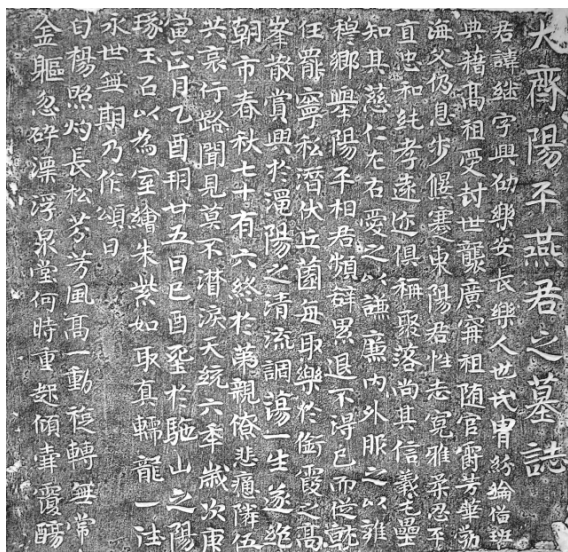 大齊陽平燕君之墓誌
君諱継字興劭樂安長樂人世氏胄紛綸備班
典藉髙祖受封世襲廣寧祖随官齊芳華勃
海父仍息步偃蹇東陽君性志寛雅柔忍至
直忠和純孝遠迩俱稱聚落尚其信義宅壘
知其慈仁左右愛之以謙廉内外服之以雍
穆鄉舉陽平相君頻辞累退不得已而從就
任罷寧私潛伏丘園每取樂於銜霞之髙
峯散賞興於陽之清流調蕩一生遂絶
朝市春秋七十有六終於第親僚悲慟隣伍
共哀行路聞見莫不潸淚天統六年歲次庚
寅正月乙酉朔廿五日己酉塟於馳山之陽
琢玉石以為室繪朱紫如取真轜龍一往
永世無期乃作頌曰
白楊照灼長松芬芳風髙一動旋轉無常
金軀忽碎漂浮泉堂何時重起傾弄霞觴